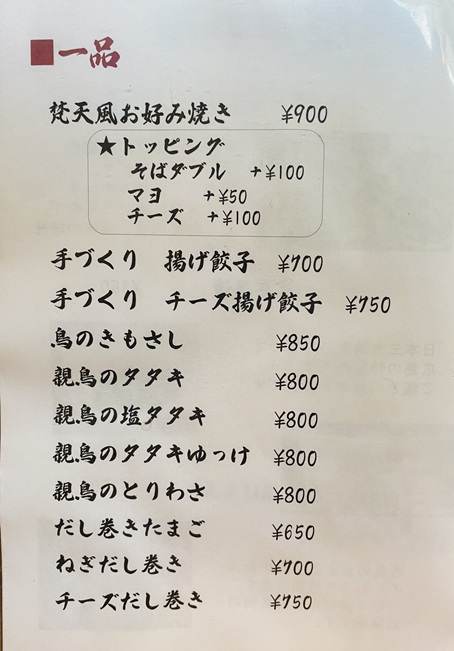 ■一品
梵天風お好み焼き ¥900
★トッピング
そばダブル +¥100
マヨ +¥50
チーズ +¥100
手づくり 揚げ餃子 ¥700
手づくり チーズ揚げ餃子 ¥750
鳥のきもさし ¥850
親鳥のタタキ ¥800
親鳥の塩タタキ ¥800
親鳥のタタキゆっけ ¥800
親鳥のとりわさ ¥800
だし巻きたまご ¥650
ねぎだし巻き ¥700
チーズだし巻き ¥750